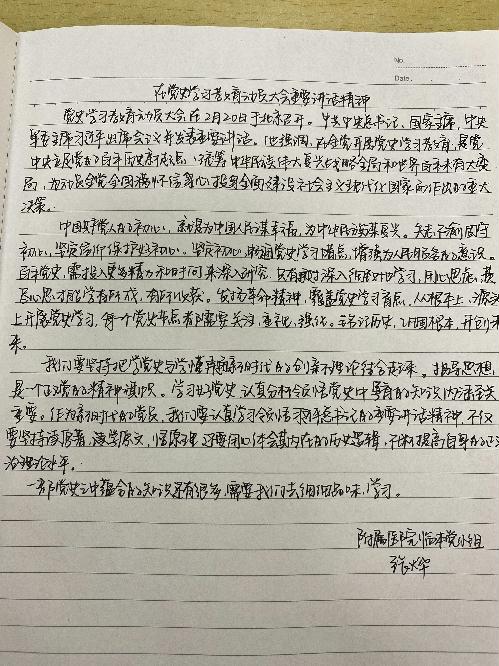 No.
Date.
在党史学习教育动员大会重要讲话精神
党史学习教育动员大会在2月20日于北京召开。中共中央总书记、国家主席，中央
军委主席习近平出席会议并发表重要讲话。他强调，在全党开展党史学习教育，是党
中央立足党的百年历史新起点、统筹中华民族伟大复兴战略全局和世界百年未有大变
局，为动员全党全国满怀信心投身全面建设社会主义现代化国家而作出的重大
决策。
中国共产党人的初心，就是为中国人民谋幸福，为中华民族谋复兴。矢志不渝固守
初心，坚定信仰保护好初心，坚定初心，把握党史学习重点，增强为人民服务的意识。
百年党史，需投入更多精力和时间来深入研究，只有通过深入细致的学习，用心思虑，最
后心思才能学有所成，有所收获。发扬革命精神，覆盖党史学习盲点，从根本上，源头
上开展党史学习，每一个党史节点有都需要关注，重视，强化。铭记历史，巩固根本，开创未
来。
我们要坚持把学党史与学懂弄通新时代的创新理论结合起来。指导思想
是一个政党的精神旗帜。学习好党史，认真分析领悟党史中孕育的知识内涵至关
重要。作为新时代的党员，我们要认真学习领悟习近平总书记的重要讲话精神，不仅
要坚持读原著，逐学原文，悟原理，还要用心体会其内在的历史逻辑，不断提高自身的政
治理论水平。
一部党史之中蕴含的知识还有很多，需要我们去细细品味，学习。
附属医院临床党小组
张烨